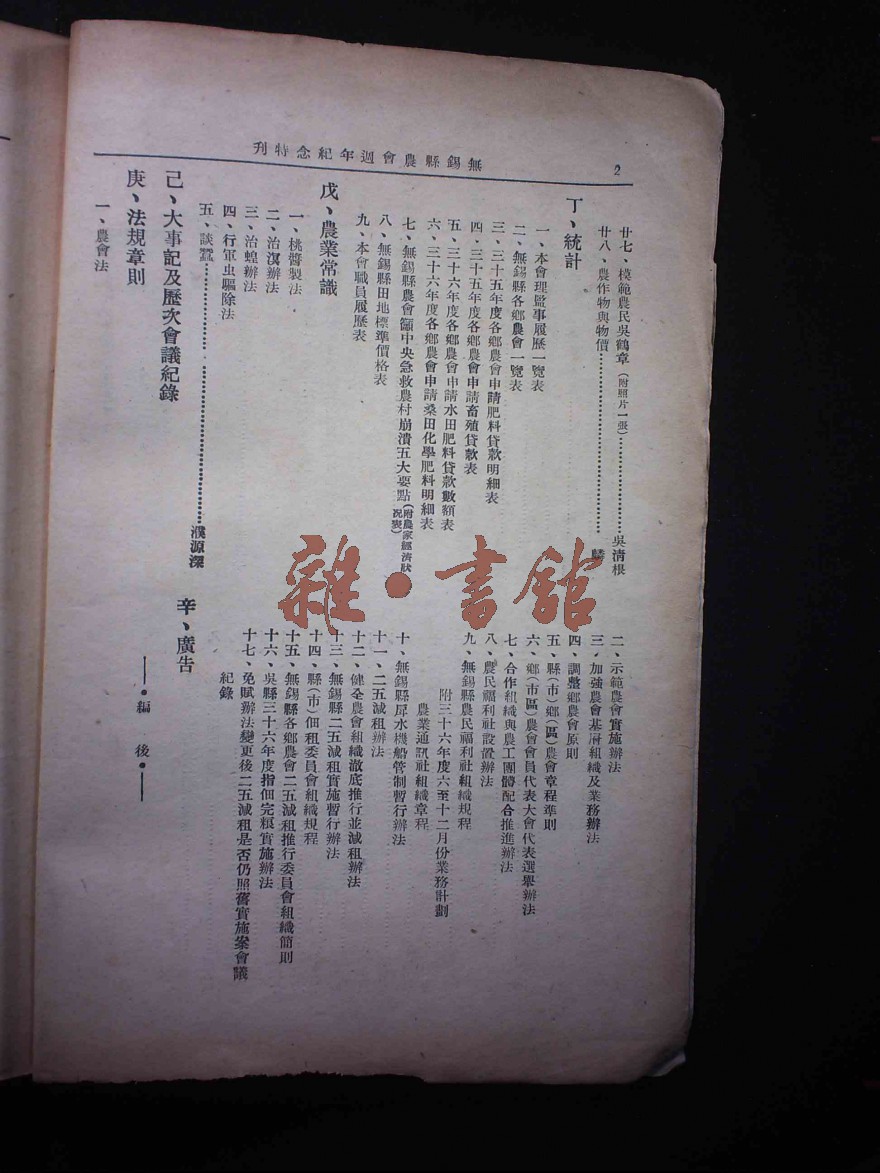 無錫縣農會週年紀念特刊
2
廿七、模範農民吳鶴章(附照片一張)…………吳清根
廿八、農作物與物價…………麟
丁、統計
一、本會理監事履歷一覽表
二、無錫縣各鄉農會一覽表
三、三十五年度各鄉農會申請肥料貸款明細表
四、三十五年度各鄉農會申請畜殖貸款表
五、三十六年度各鄉農會申請水田肥料貸款數額表
六、三十六年度各鄉農會申請桑田化學肥料明細表
七、無錫縣農會籲中央急救農村崩潰五大要點(附農家經濟狀況表)
八、無錫縣田地標準價格表
九、本會職員履歷表
戊、農業常識
一、桃醬製法
二、治螟辦法
三、治蝗辦法
四、行軍虫驅除法
五、談蠶…………濮源深
己、大事記及歷次會議紀錄
庚、法規章則
一、農會法
二、示範農會實施辦法
三、加強農會基層組織及業務辦法
四、調整鄉農會原則
五、縣(市)鄉(區)農會章程準則
六、鄉(市區)農會會員代表大會代表選舉辦法
七、合作組織與農工團體配合推進辦法
八、農民福利社設置辦法
九、無錫縣農民福利社組織規程
附三十六年度六至十二月份業務計劃
農業通訊社組織章程
十、無錫縣戽水機船管制暫行辦法
十一、二五減租辦法
十二、健全農會組織澈底推行並減租辦法
十三、無錫縣二五減租實施暫行辦法
十四、縣(市)佃租委員會組織規程
十五、無錫縣各鄉農會二五減租推行委員會組織簡則
十六、吳縣三十六年度指佃完糧實施辦法
十七、免賦辦法變更後二五減租是否仍照舊實施案會議
紀錄
辛、廣告
——•編 後•——
雜•書館